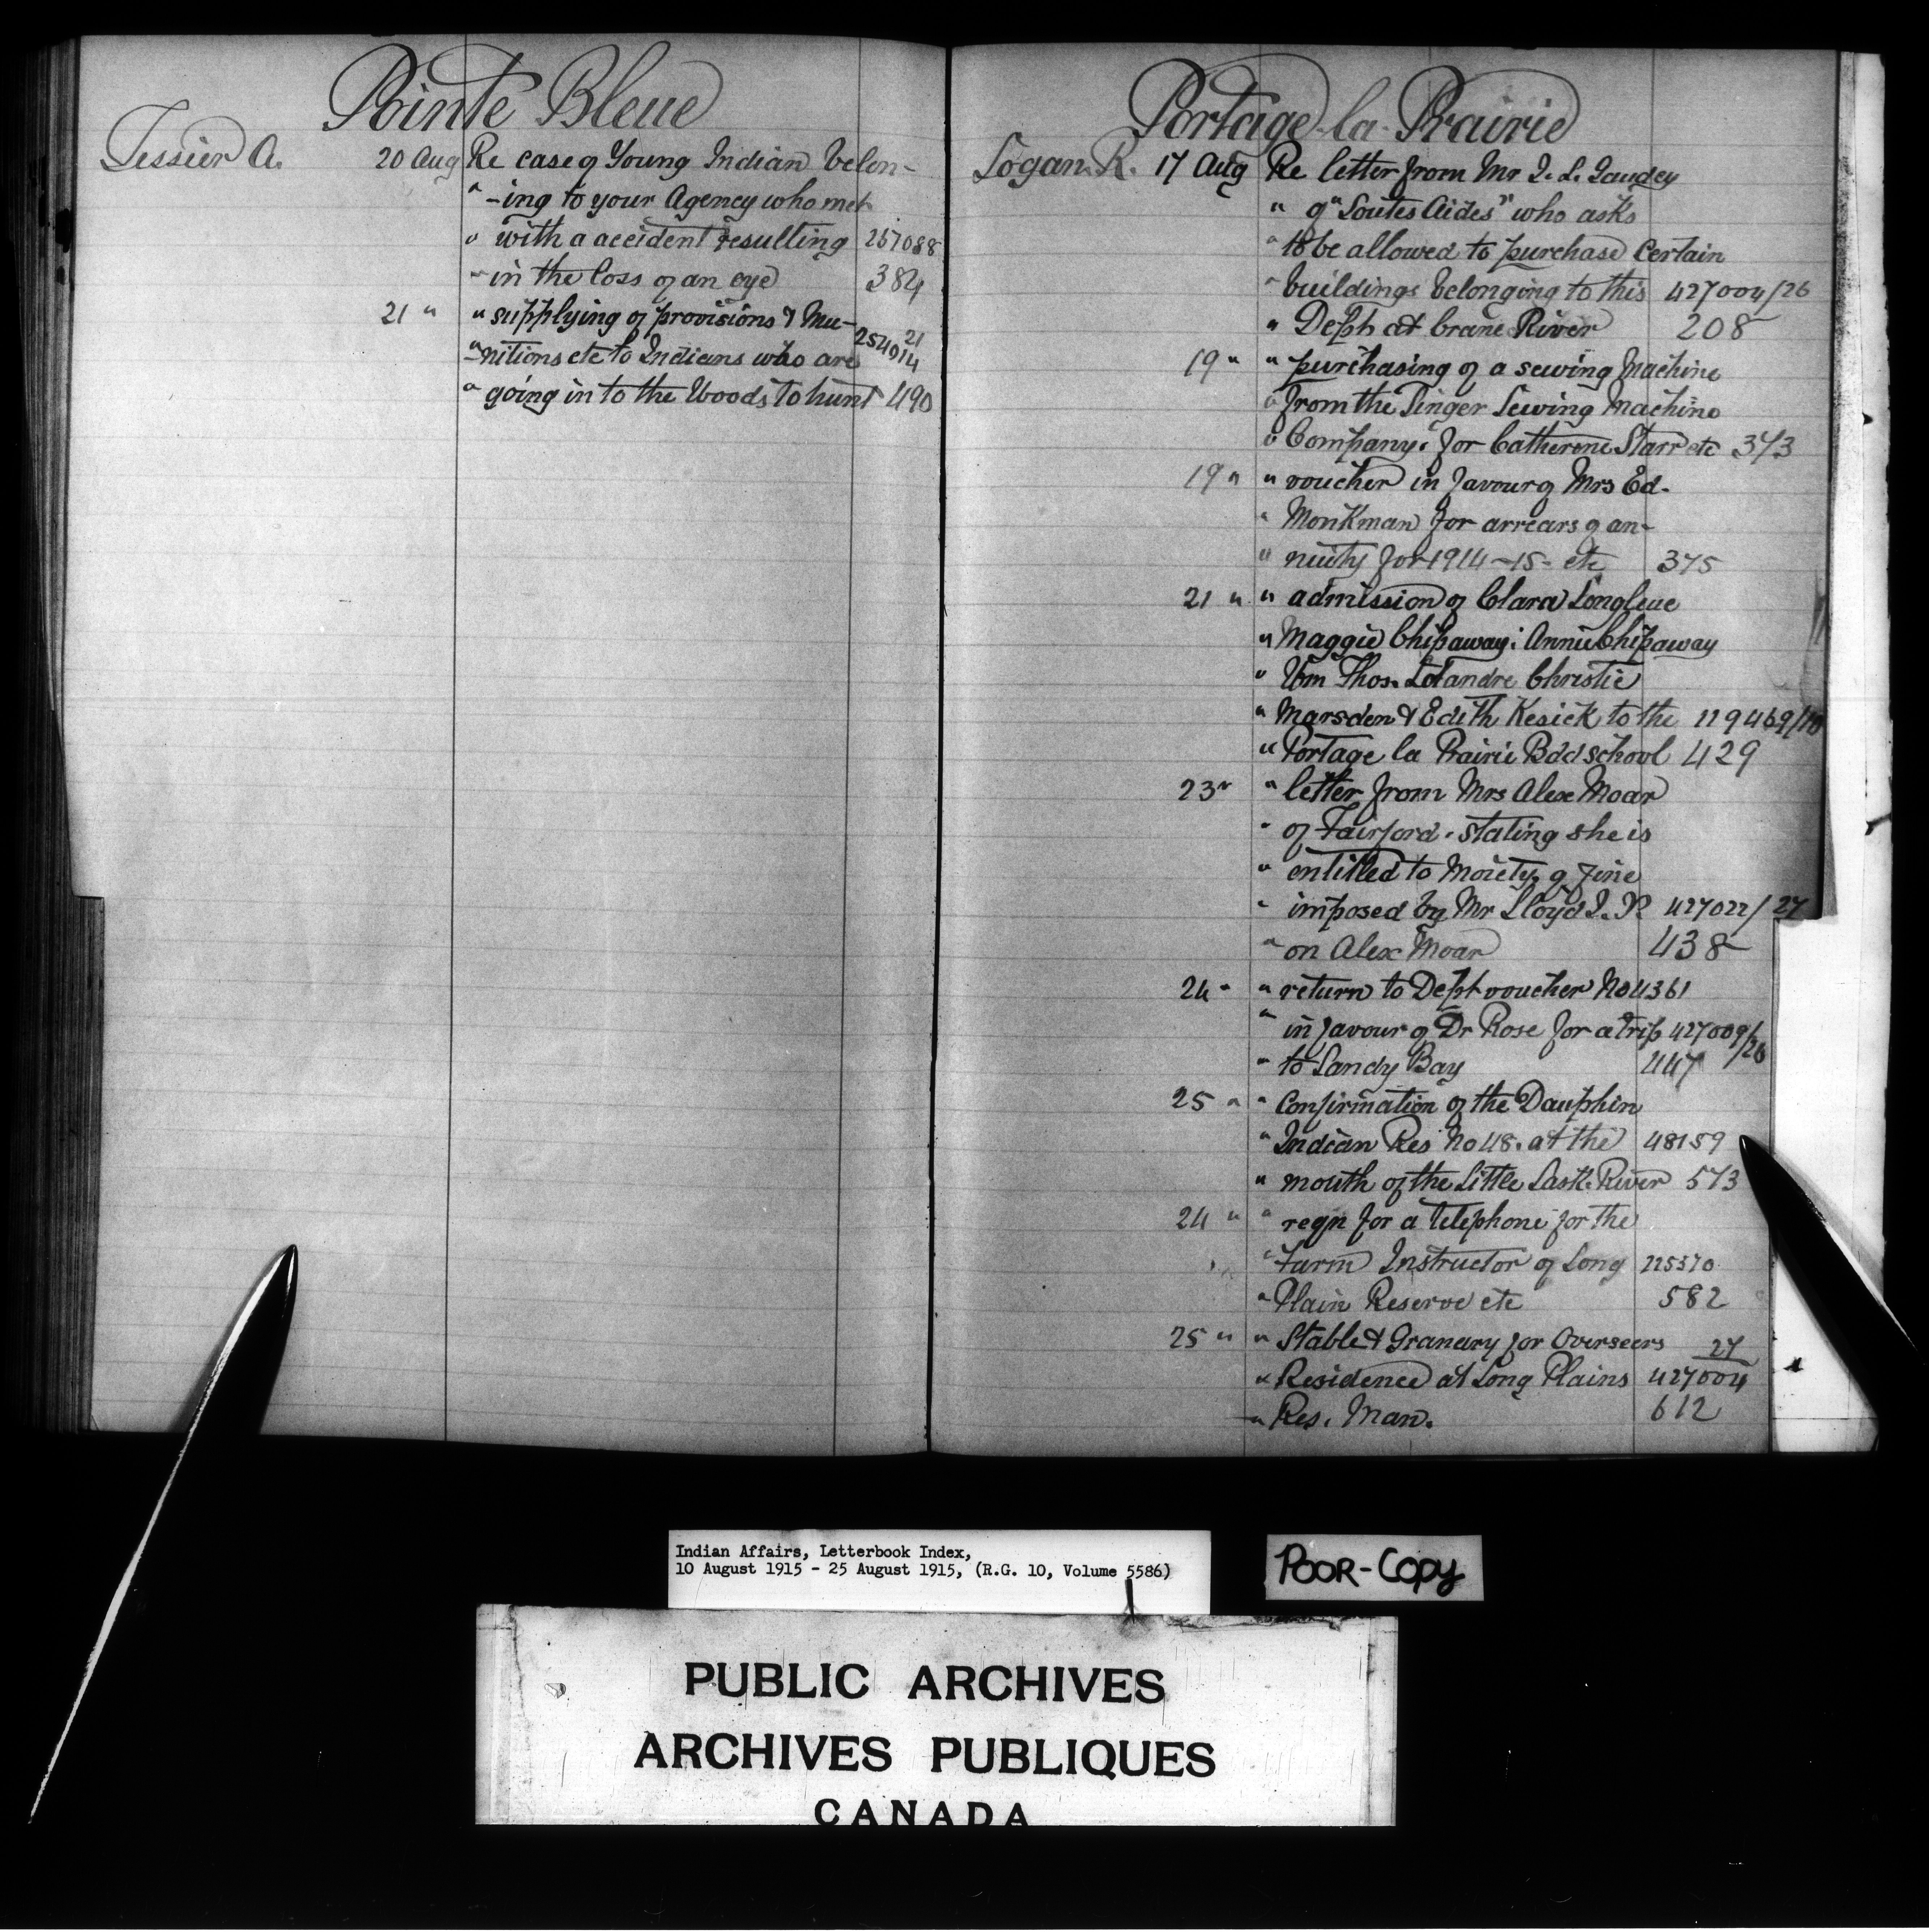 Pointe Bleue
Tessier A. 20 Aug Re case of Young Indian belon-
" -ing to your Agency who met
" with a accident resulting 257088
" in the loss of an eye 384
21 " " supplying of provisions & Mu-
" -nitions etc to Indians who are 254914 21
" going in to the Woods to hunt 490
Portage la Prairie
Logan. R. 17 Aug Re letter from Mr J. L. Gaudey
" of "Soutes Aides" who asks
" to be allowed to purchase Certain
" buildings belonging to this 427004/26
" Dept at Crane River 208
19 " " purchasing of a sewing Machine
" from the Singer Sewing Machine
" Company. for Catherine Starr etc 373
19 " " voucher in favour of Mrs Ed-
" Monkman for arrears of an-
" nuity for 1914-15- etc 375
21 " " admission of Clara Longleue
" Maggie Chipaway: Annie Chipaway
" Wm Thos. Christie
" Marsden & Edith Kesick to the 119469/10
" Portage la Prairie Bdd school 429
23 " " letter from Mrs Alex Moar
" of Fairford. stating she is
" entitled to Moiety of fine
" imposed by Mr Lloyd J. P. 427022/27
" on Alex Moar 438
24 " " return to Dept voucher No 4361
" in favour of Dr Rose for a trip 427009/26
" to Sandy Bay 447
25 " " Confirmation of the Dauphin
" Indian Res No 48. at the 48159
" mouth of the Little Sask. River 573
24 " " reqn for a telephone for the
" Farm Instructor of Long 225570
" Plain Reserve etc 582
25 " " Stable & Granary for Overseers 27
" Residence at Long Plains 427004
" Res. Man. 612
Indian Affairs, Letterbook Index,
10 August 1915 - 25 August 1915, (R.G. 10, Volume 5586)
POOR-COPY
PUBLIC ARCHIVES
ARCHIVES PUBLIQUES
CANADA